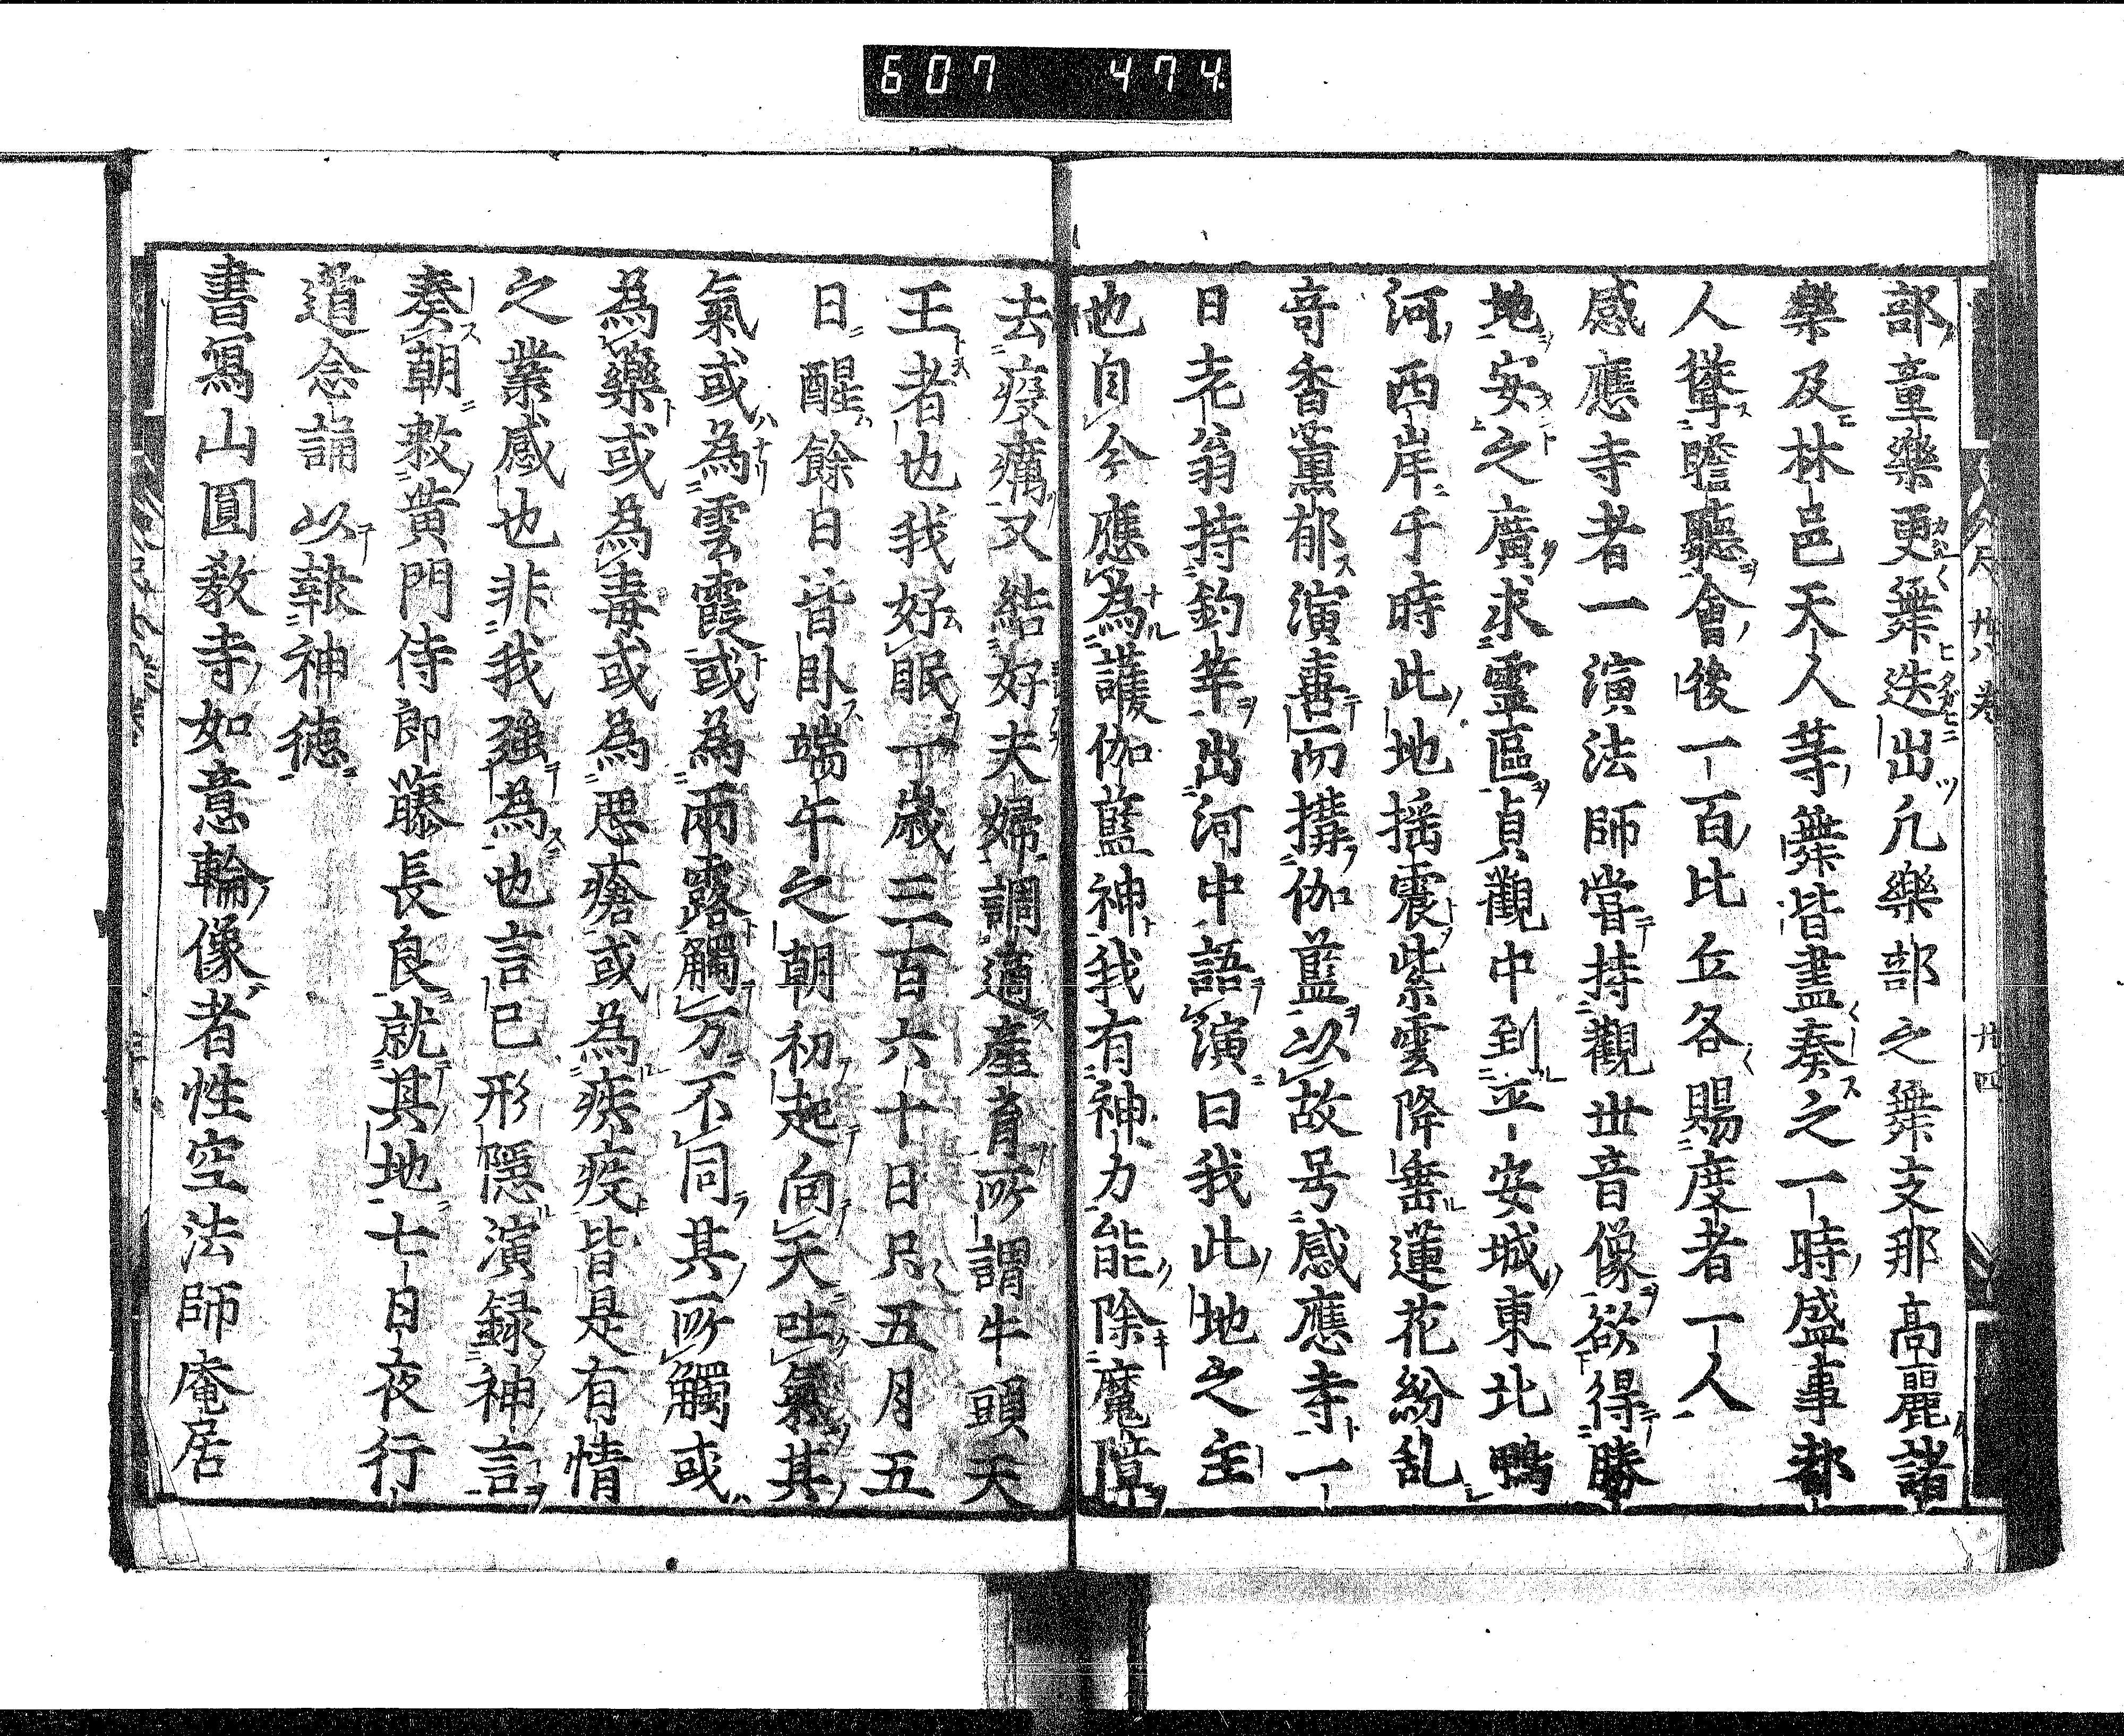 607 474
部童樂更舞迭出凢樂部之舞支那高麗諸
樂及林邑天人等舞皆盡奏之一時盛事都
人聳瞻聽會後一百比丘各賜度者一人
感應寺者一演法師嘗持觀世音像欲得勝
地安之廣求靈區貞觀中到平安城東北鴨
河西岸于時此地揺震紫雲降垂蓮花紛乱
竒香薫郁演喜而搆伽藍以故号感應寺一
日老翁持釣竿出河中語演曰我此地之主
也自今應為護伽藍神我有神力能除魔障
去疫癘又結好夫婦調適產育所謂牛頭天
王者也我好眠一歳三百六十日只五月五
日醒餘日皆臥端午之朝初起向天吐氣其
氣或為雲霞或為雨露觸万不同其所觸或
為藥或為毒或為惡瘡或為疾疫皆是有情
之業感也非我強為也言已形隱演録神言
奏朝敕黄門侍郎藤長良就其地七日夜行
道念誦以報神徳
書寫山圓教寺如意輪像者性空法師庵居